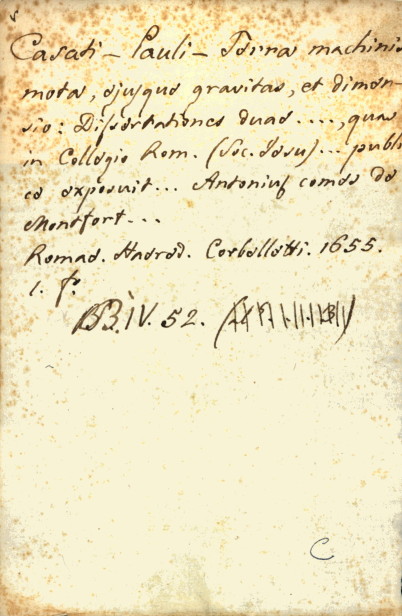 Casati – Pauli – Terra machinis
mota, ejusque gravitas, et dimen-
sio: Dissertationes duae ...., quas
in Collegio Rom. (Soc. Jesu) ... publi
ce exposuit ... Antonius comes de
Montfort ...
Romae. Haered. Corbelletti. 1655.
1. f.
BB. IV. 52.
C